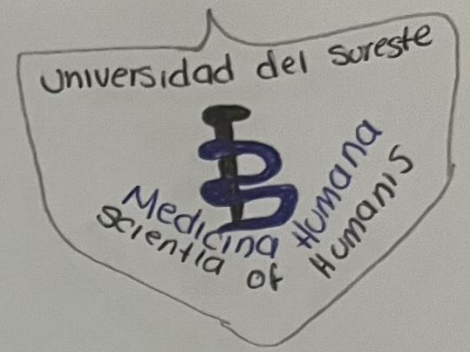 Universidad del sureste
Medicina Humana
scientia of Humanis